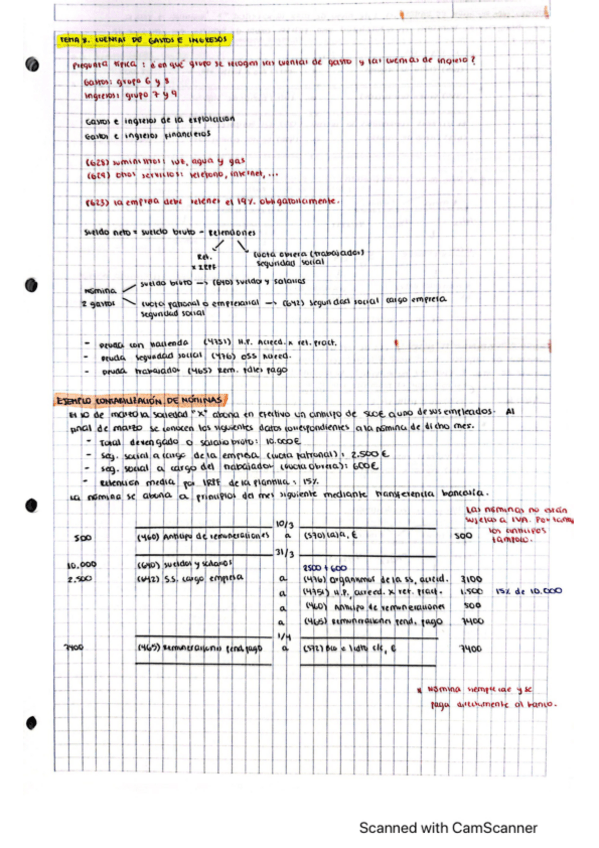 TEMA 8. CUENTAS DE GASTOS E INGRESOS
Pregunta típica: ¿en qué grupo se recogen las cuentas de gasto y las cuentas de ingreso?
Gastos: grupo 6 y 8
Ingresos: grupo 7 y 9
Gastos e ingresos de la explotación
Gastos e ingresos financieros
(628) suministros: luz, agua y gas
(629) otros servicios: teléfono, internet, ...
(623) la empresa debe retener el 19% obligatoriamente.
sueldo neto = sueldo bruto - retenciones
Ret. x IRPF
cuota obrera (trabajador) seguridad social
nómina 2 gastos
sueldo bruto → (640) sueldo y salarios
cuota patronal o empresarial → (642) seguridad social cargo empresa
seguridad social
- deuda con hacienda (4751) H.P. Acreed. x ret. pract.
- deuda seguridad social (476) OSS Acreed.
- deuda trabajador (465) Rem. pdtes pago
EJEMPLO CONTABILIZACIÓN DE NÓMINAS
El 10 de marzo la sociedad "X" abona en efectivo un anticipo de 500€ a uno de sus empleados. Al
final de marzo se conocen los siguientes datos correspondientes a la nómina de dicho mes.
- Total devengado o salario bruto: 10.000€
- Seg. social a cargo de la empresa (cuota patronal): 2.500€
- seg. social a cargo del trabajador (cuota obrera): 600€
- Retención media por IRPF de la plantilla: 15%
La nómina se abona a principios del mes siguiente mediante transferencia bancaria.
Las nóminas no están
sujetas a IVA. Por tanto
los anticipos
tampoco.
10/3
500 (460) Anticipo de remuneraciones a (570) caja, € 500
31/3
10.000 (640) sueldos y salarios 2500 + 600
2.500 (642) S.S. cargo empresa a (476) organismos de la ss, acreed. 3100
a (4751) H.P. acreed. x ret. pract. 1.500 15% de 10.000
a (460) Anticipo de remuneraciones 500
a (465) remuneraciones pend. pago 7400
1/4
7400 (465) Remuneraciones pend pago a (572) Bco e Instit c/c, € 7400
* Nómina siempre se
paga directamente al banco.
Scanned with CamScanner